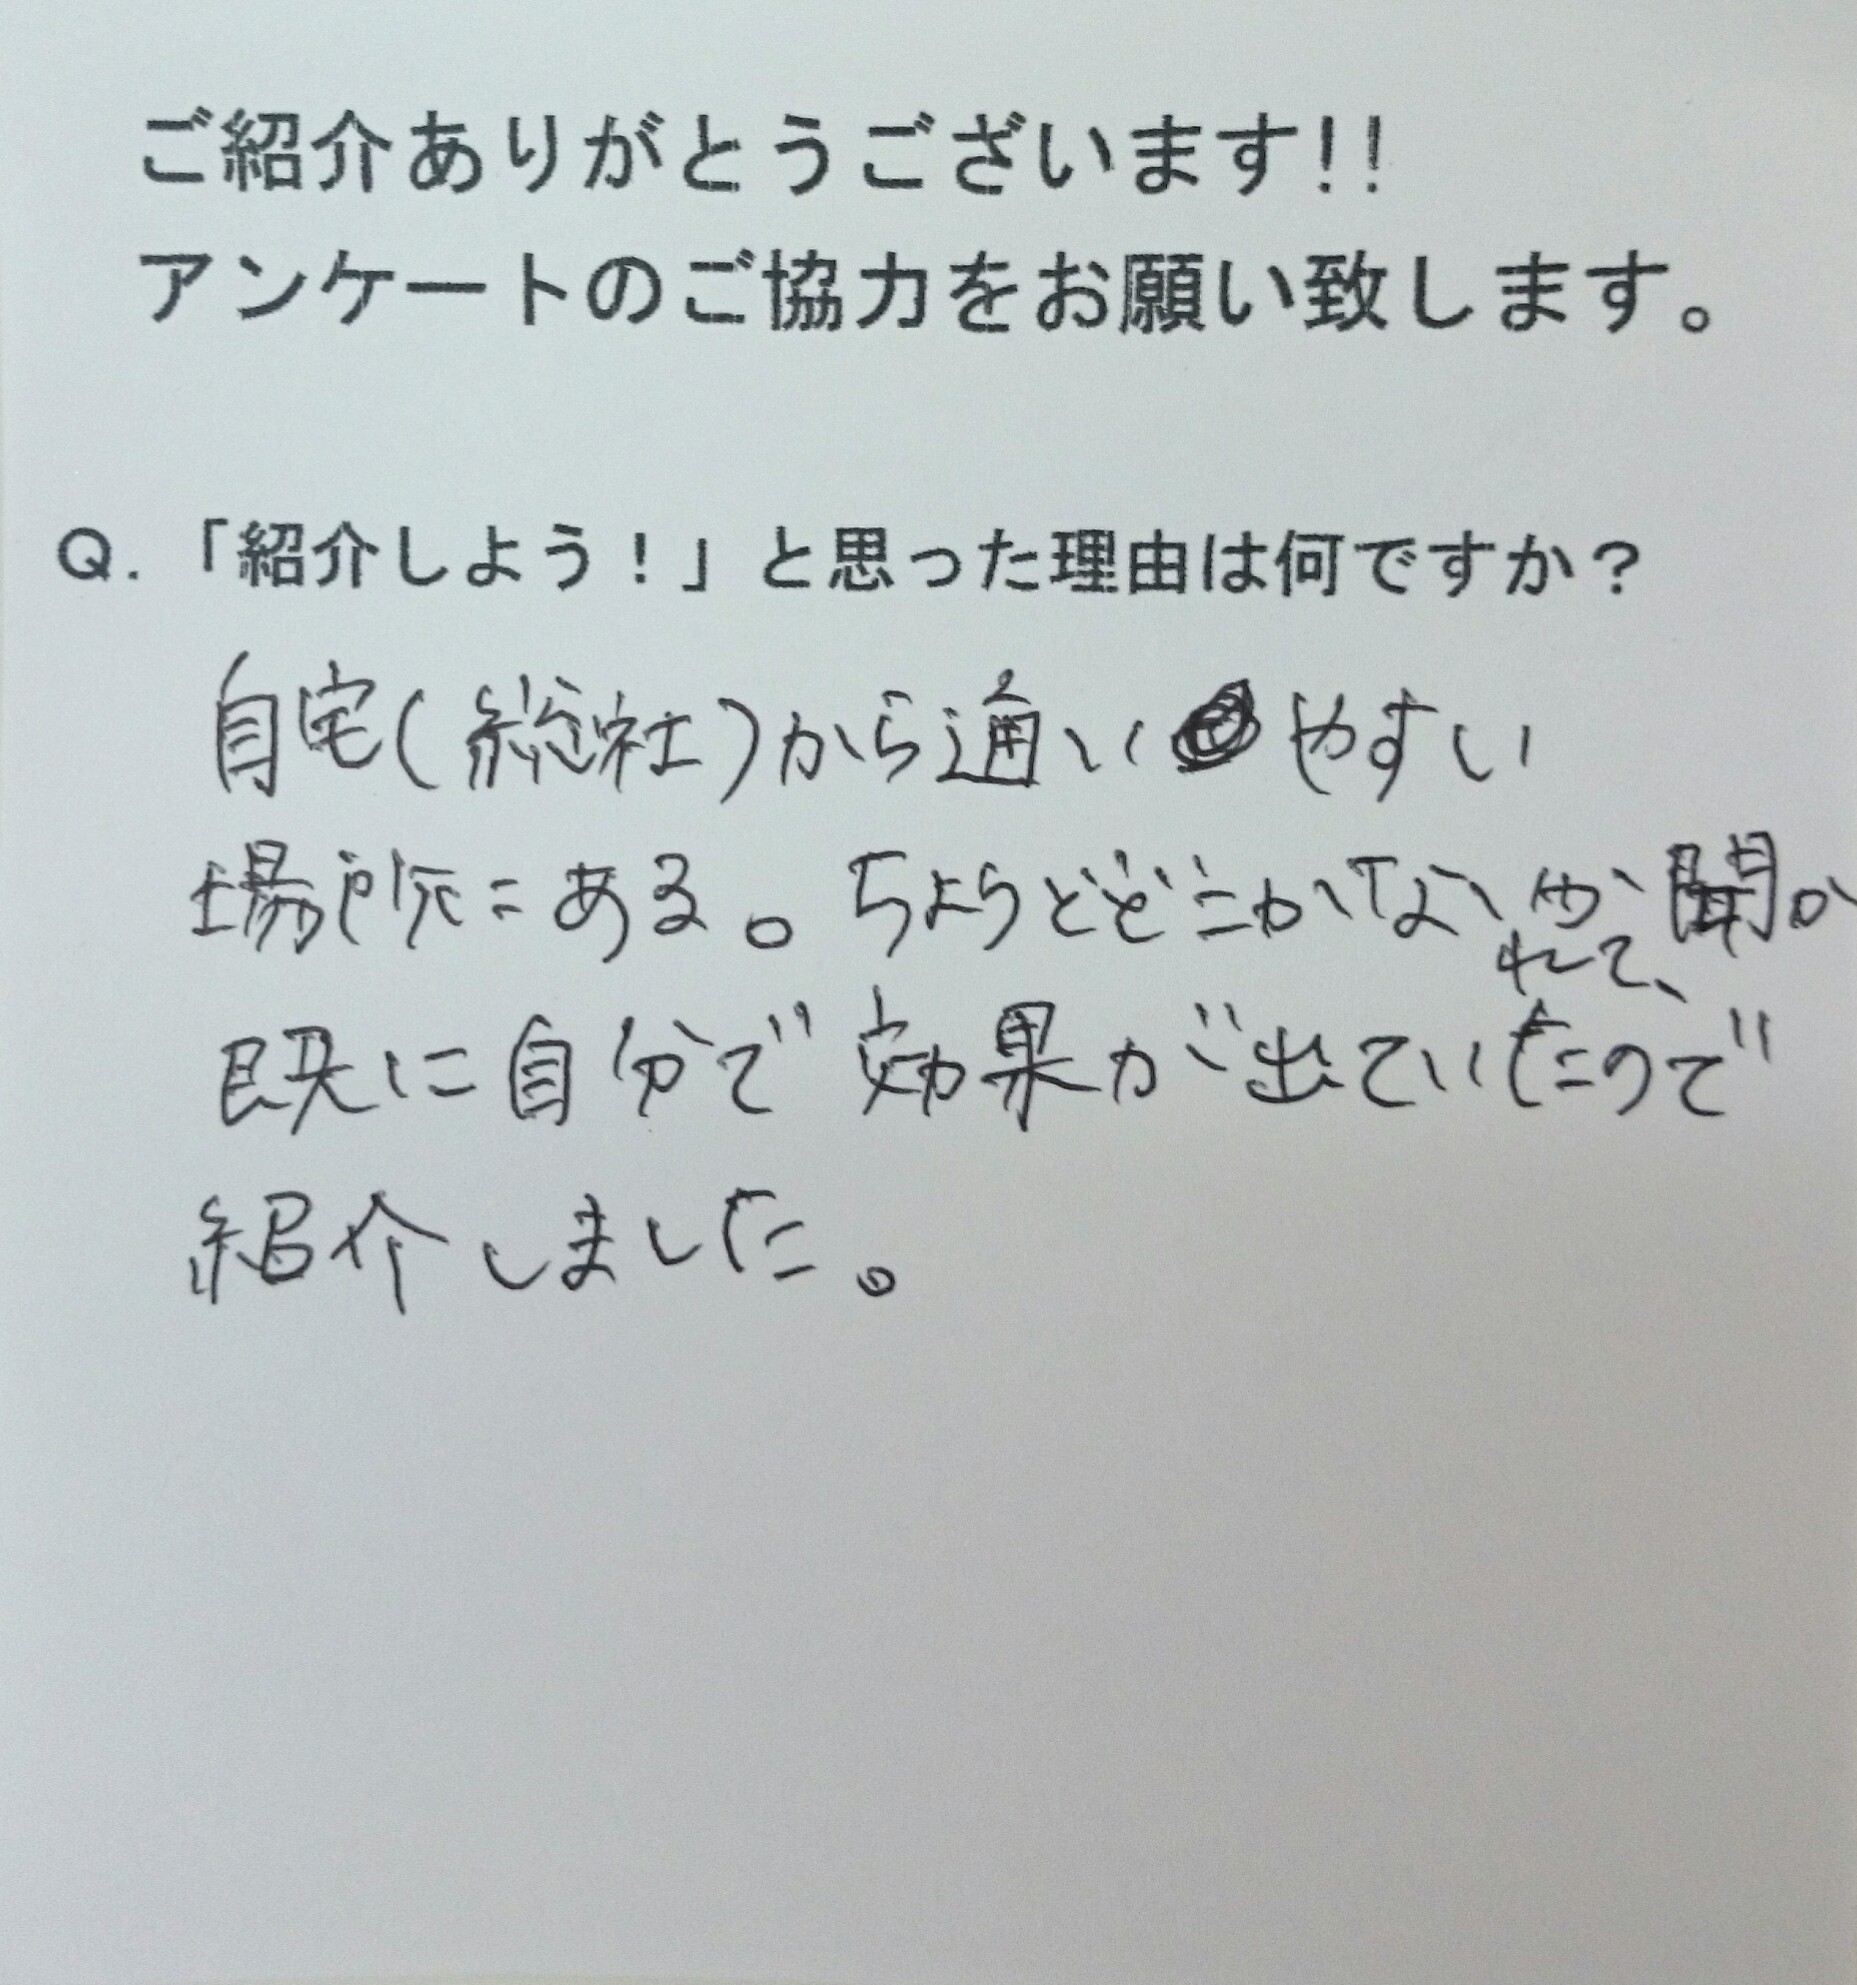 ご紹介ありがとうございます!!
アンケートのご協力をお願い致します。
Q.「紹介しよう！」と思った理由は何ですか？
自宅(総社)から通いやすい
場所にある。ちょうどどこかないか聞か
れて、
既に自分で効果が出ていたので
紹介しました。